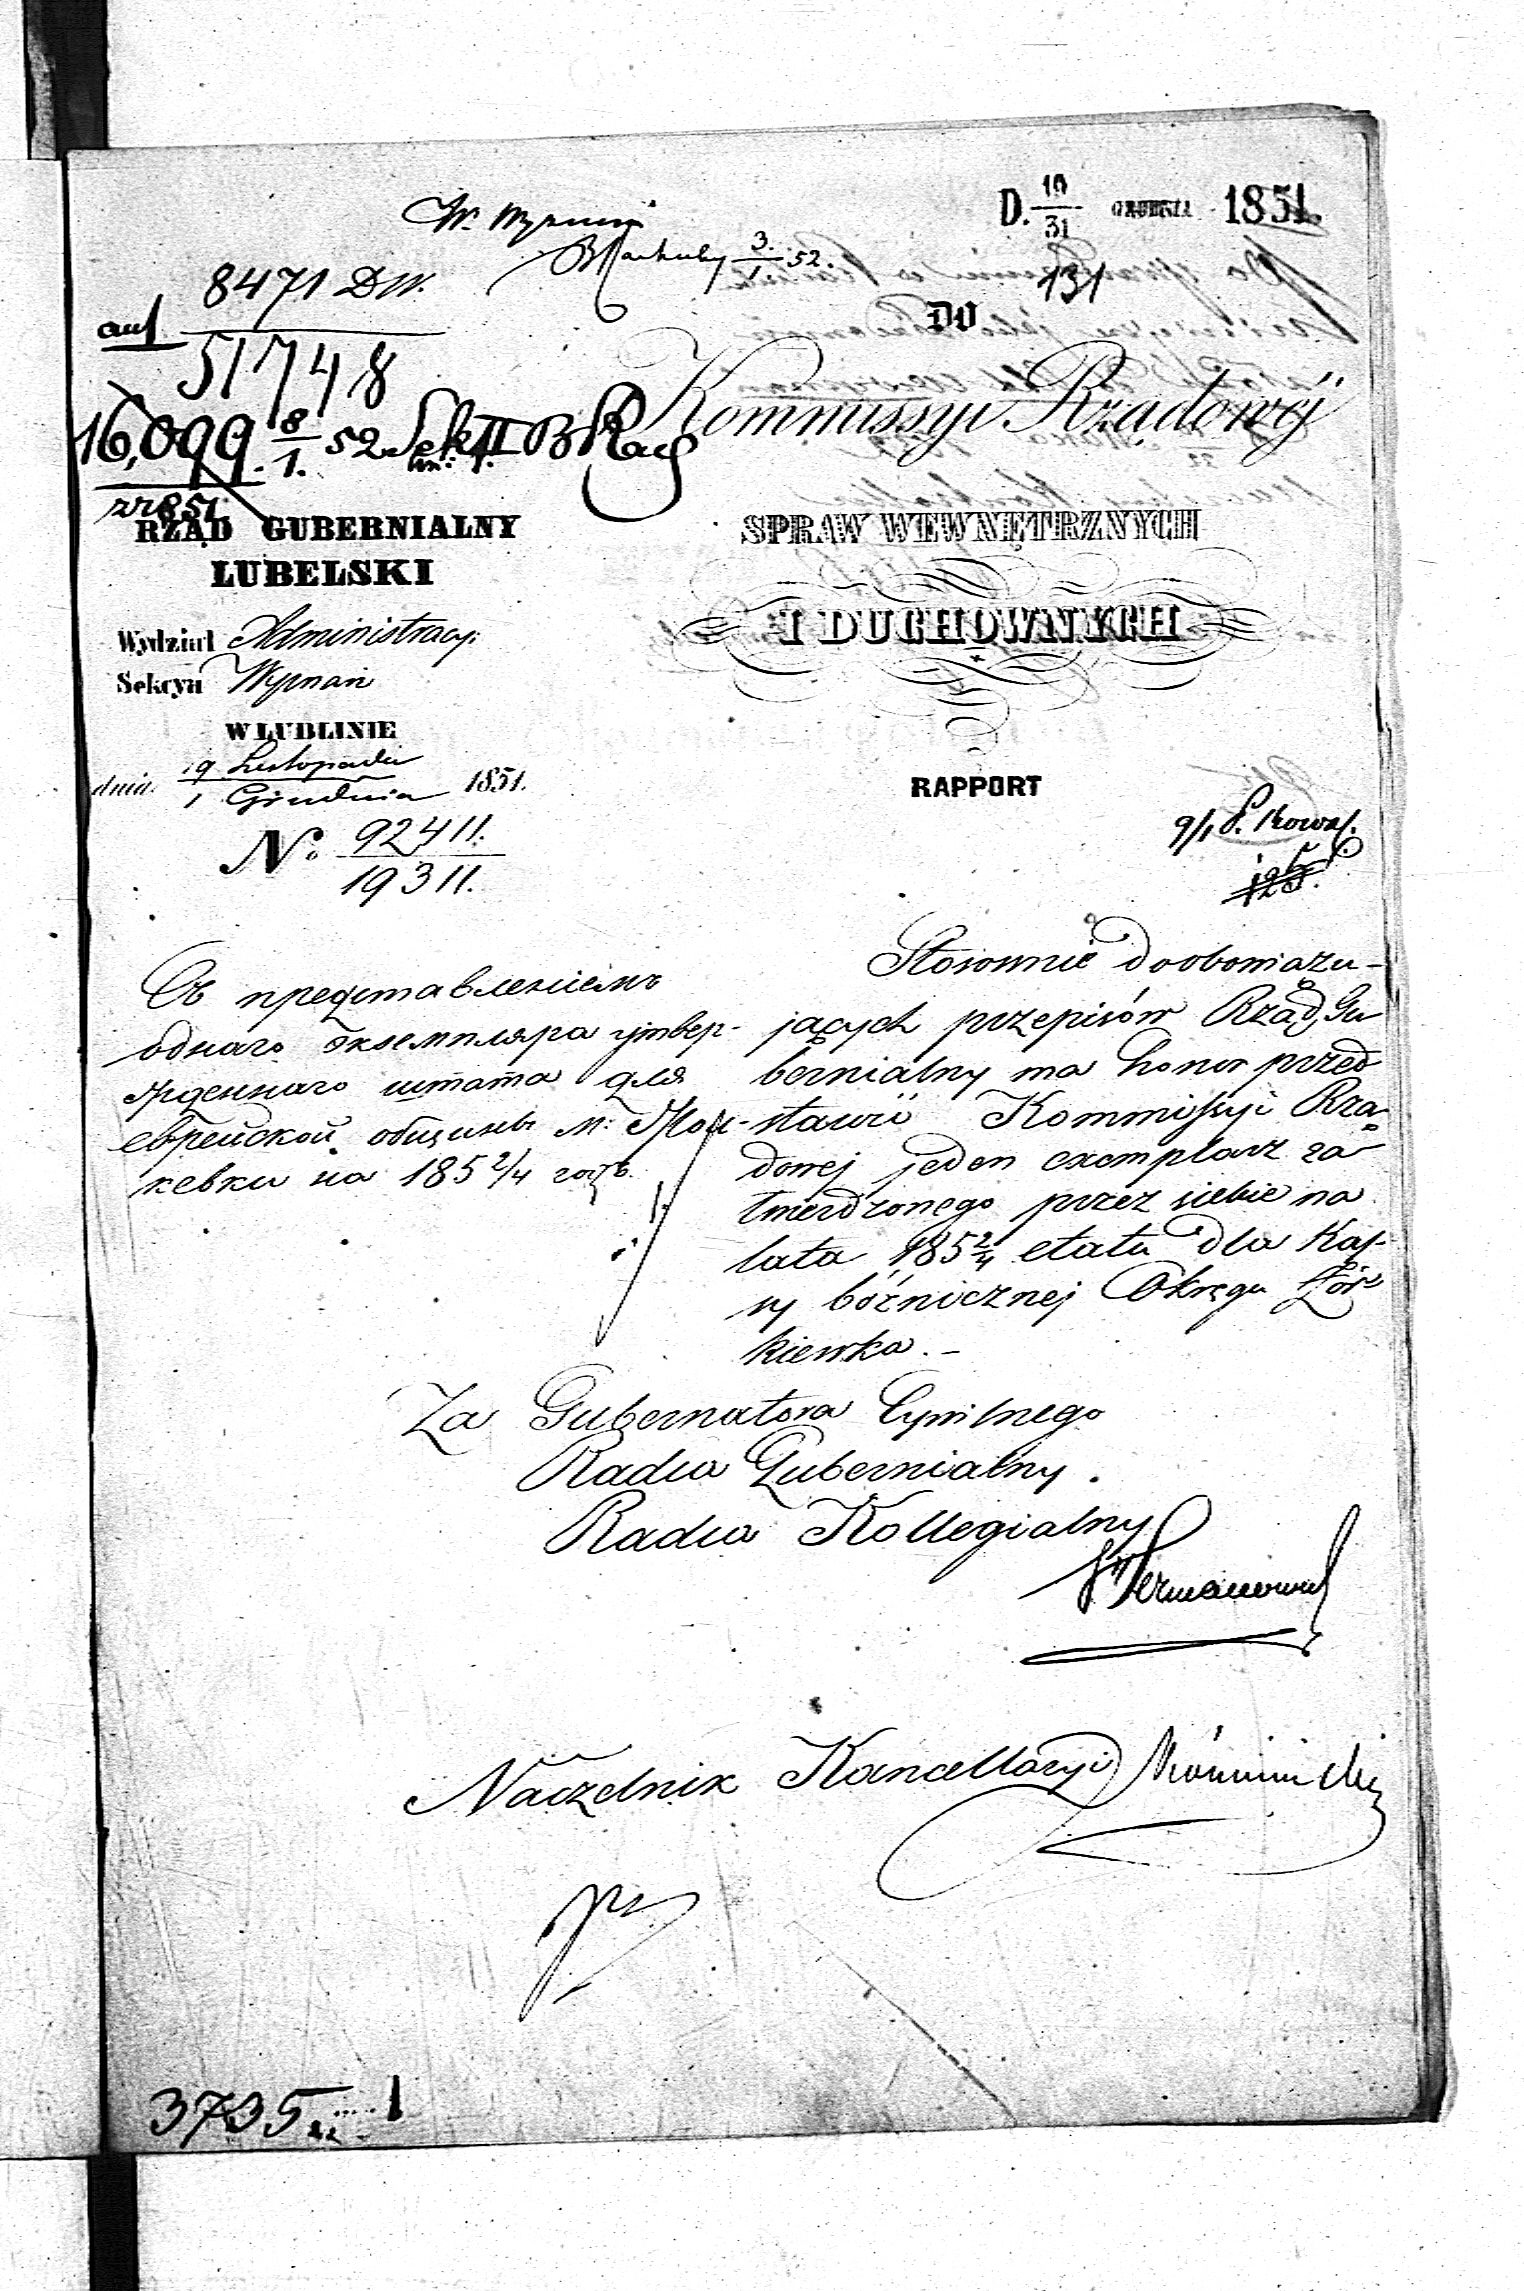 D. 19/31 GRUDNIA 1851.
W. Wyznań
3/1 52.
131
8471 DW.
51748
16,099. 8/1. 52 Sekr. II
RZĄD GUBERNIALNY
LUBELSKI
Wydział Administracyi
Sekcya Wyznań
W LUBLINIE
dnia 19 Listopada / 1 Grudnia 1851.
No. 92411. / 19311.
DO
Kommissyi Rządowéj
SPRAW WEWNĘTRZNYCH
I DUCHOWNYCH
RAPPORT
125.
Съ представленіемъ
однаго экземпляра утвер-
жденнаго штата для
еврейской общины м:
кевки на 185 2/4 годъ.
Stosownie do obowiązu-
jących przepisów Rząd Gu
bernialny ma honor przed
stawić Kommissyi Rzą
dowej jeden exemplarz za
twierdzonego przez siebie na
lata 185 2/4 etatu dla Kas-
sy bóżnicznej Okręgu Żół-
kiewka. –
Za Gubernatora Cywilnego
Radca Gubernialny.
Radca Kollegialny
Naczelnik Kancellaryi
3735